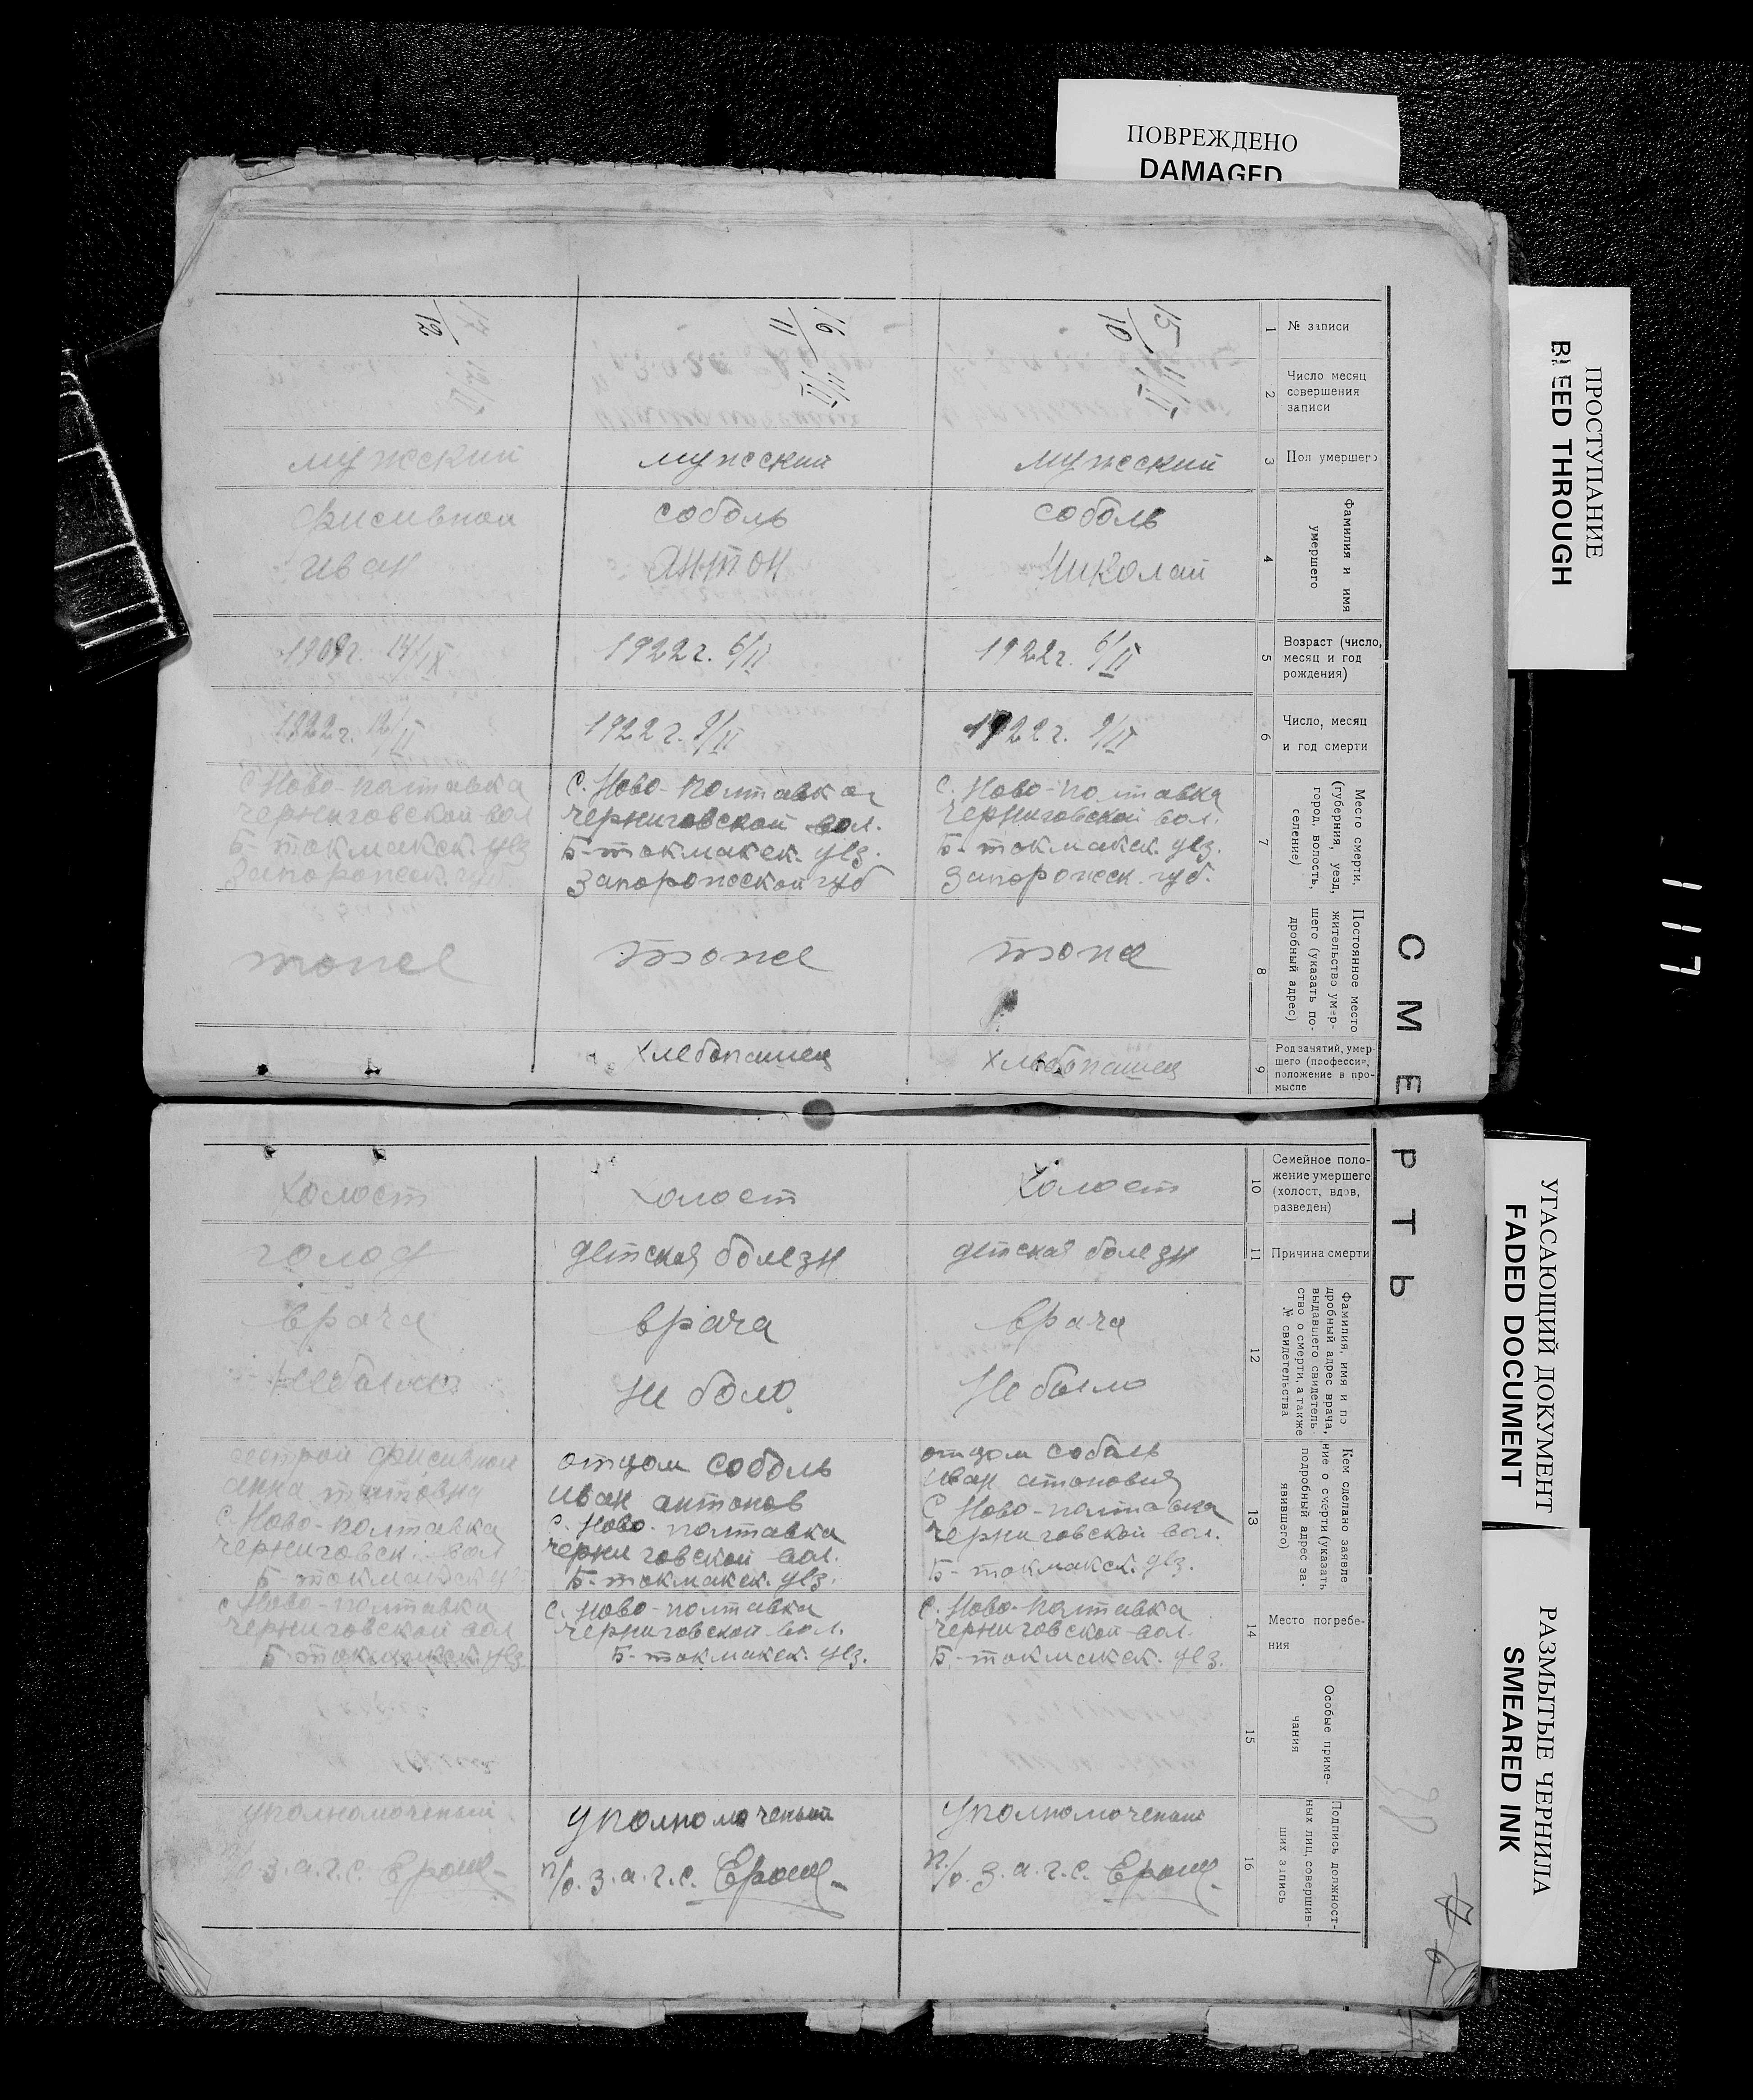 ПОВРЕЖДЕНО
DAMAGED
ПРОСТУПАНИЕ
BLEED THROUGH
УГАСАЮЩИЙ ДОКУМЕНТ
FADED DOCUMENT
РАЗМЫТЫЕ ЧЕРНИЛА
SMEARED INK
117
СМЕРТЬ
1
№ записи
2
Число месяц
совершения
записи
3
Пол умершего
4
Фамилия и имя
умершего
5
Возраст (число,
месяц и год
рождения)
6
Число, месяц
и год смерти
7
Место смерти,
(губерния, уезд,
город, волость,
селение)
8
Постоянное место
жительство умер-
шего (указать по-
дробный адрес)
9
Род занятий, умер-
шего (профессия,
положение в про-
мысле
10
Семейное поло-
жение умершего
(холост, вдов,
разведен)
11
Причина смерти
12
Фамилия, имя и по
дробный адрес врача,
выдавшего свидетель
ство о смерти, а также
№ свидетельства
13
Кем сделано заявле-
ние о смерти (указать
подробный адрес за-
явившего)
14
Место погребе-
ния
15
Особые приме-
чания
16
Подпись должност-
ных лиц, совершив-
ших запись
15/10
мужеский
соболь
Николай
1922г. 6/II
1922г. 9/II
с. Ново-полтавка
черниговской вол.
Б-токмакск. уез.
Запорожеск. губ.
тоже
хлебопашец
Холост
детская болезн
врача
Не было
отцом соболь
Иван
с Ново-полтавка
черниговской вол.
Б-токмакск. уез.
с. Ново-полтавка
черниговской вол.
Б-токмакск. уез.
Уполномоченый
п/о. з.а.г.с. Ерош
16/11
мужеский
соболь
антон
1922г. 6/II
1922г. 9/II
с. Ново-полтавка
черниговской вол.
Б-токмакск. уез.
Запорожеской губ
тоже
хлебопашец
холост
детская болезн
врача
не було
отцом соболь
иван антонов
с. Ново-полтавка
черниговской вол.
Б-токмакск. уез.
с. Ново-полтавка
черниговской вол.
Б-токмакск. уез.
уполномоченый
п/о. з.а.г.с. Ерош
17/12
мужеский
иван
14/IX
1922г. 12/II
с Ново-полтавка
черниговской вол
Б-токмакск. уез
Запорожеск. губ.
тоже
Холост
голод
врача
небыло
сестрой
анна
с. Ново-полтавка
черниговск. вол
Б-токмакск
с Ново-полтавка
черниговской вол
Б-токмакск. уез
уполномоченый
п/о. з.а.г.с. Ерош